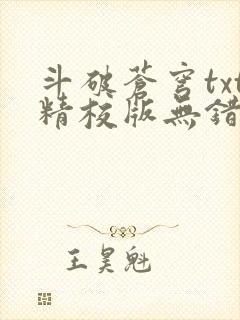 斗破蒼穹txt
精校版無錯
王昊魁